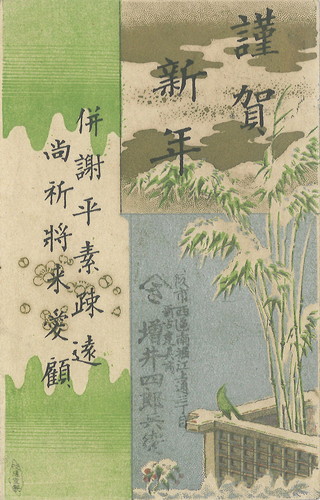 謹賀
新年
併謝平素疎遠
尚祈将来愛顧
増井四郎兵衛